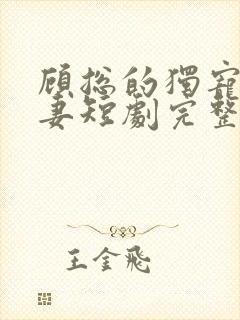 顾总的獨寵
妻短劇完整
王金飛